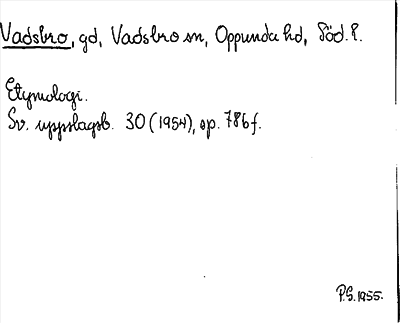 Vadsbro, gd, Vadsbro sn, Oppunda hd, Söd. l.
Etymologi.
Sv. uppslagsb. 30 (1954), sp. 786 f.
P.S. 1955.